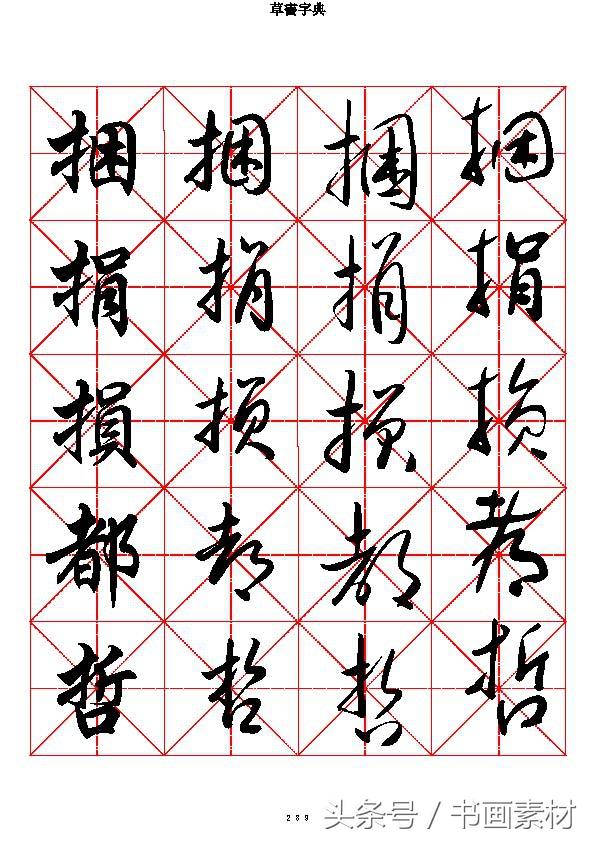 草書字典
捆 捆 捆 捆
捐 捐 捐 捐
損 損 損 損
都 都 都 都
哲 哲 哲 哲
289
头条号 / 书画素材